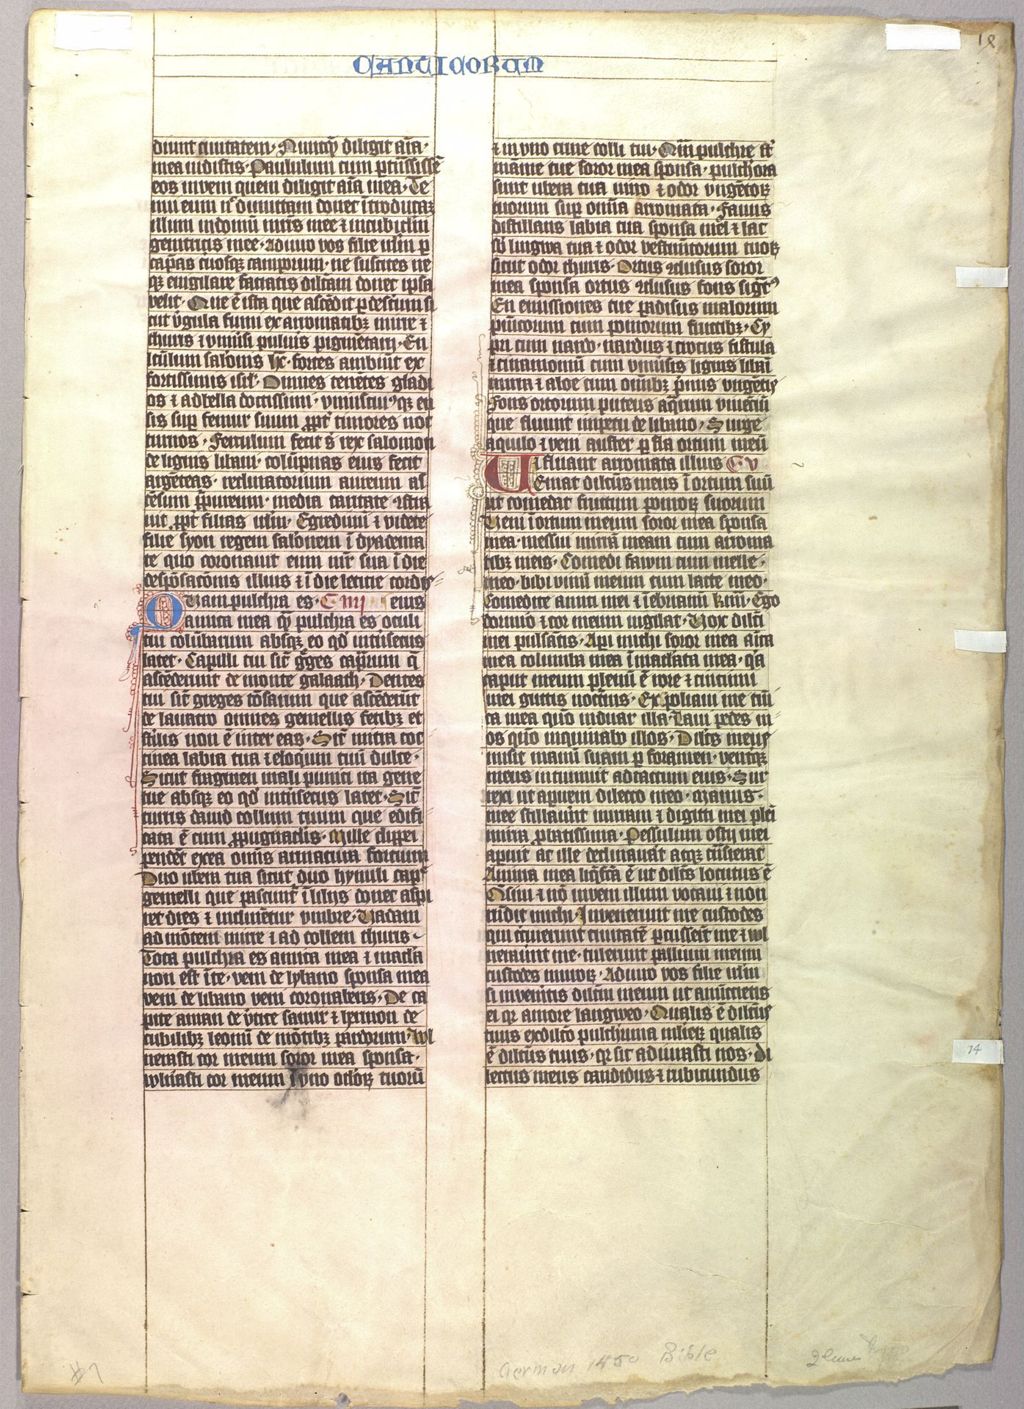 CANTICORUM
18
diunt civitatem · Nunq̄ diligit aīa ·
mea vidistis · Paululum cum ptnsissē
eos inveni quem diligit aīa mea · Te
nui eum nͨ dimittam donec ītroducaꝫ
illum in domū mr̄is mee ⁊ in cubiclm̄
genitricis mee · Adiuro vos filie ierlm̄ p
cap̄as cervosqꝫ camporum · ne suscites ne
qꝫ evigilare faciatis dilc̄am donec ipsa
velit · Que ē ista que ascēdit p desertum si
cut v̄gula fumi ex aromatibꝫ mirre ⁊
thuris ⁊ univ̄si pulvis pigmētarii · En
lc̄ulum salomōis lx · fortes ambiūt ex
fortissimis isrl̄ · Omnes tenētes gladi
os ⁊ ad bella doctissimi · uniuscuiꝰqꝫ en
sis sup femur suum ꝓpt̄ timores noc
turnos · Ferculum fecit s̄ rex salomon
de lignis libani · colūpnas eius fecit
argēteas · reclinatorium aureum as
cēsum p̄pureum · media caritate ꝯstra
vit ꝓpt̄ filias ierlm̄ · Egredimī ⁊ videte
filie syon regem salomem ī dyadema
te quo coronavit eum mr̄ sua ī die
despōsacōnis illius ⁊ ī die leticie cordis
Quam pulchra es · C iiij eius
amica mea q̄ pulchra es oculi
tui colūbarum absqꝫ eo qd̄ intrīsecus
latet · Capilli tui sic̄ g̊ges cap̄rum q̄
ascēderunt de monte galaath · Dentes
tui sic̄ greges tōsarum que ascēderūt
de lavacro omnes gemellis fetibꝫ et
st̄ilis non ē inter eas · Sic̄ vitta coc
cinea labia tua ⁊ eloquim tuū dulce ·
Sicut fragmen mali punici ita gene
tue absqꝫ eo qd̄ intrīsecus latet · Sic̄
turris david collum tuum que edifi
cata ē cum ꝓpugnaclis · Mille clypei
pendēt ex ea omīs armatura fortium
Duo ubera tua sicut duo hynuli capͤ
gemelli que pascunt ī liliis donec aspi
ret dies ⁊ inclinētur umbre · Vadam
ad mōtem mirre ⁊ ad collem thuris ·
Tota pulchra es amica mea ⁊ macl̄a
non est ī te · veni de lybano sponsa mea
veni de libano veni coronaberis · De ca
pite aman de v̄tice sanir ⁊ hermon de
cubilibꝫ leonū de mōtibꝫ pardorum · Vl
nerasti cor meum soror mea sponsa ·
vulnasti cor meum ī uno oclōꝝ tuorū
⁊ in uno crine colli tui · Qm̄ pulchre st̄
mamme tue soror mea sponsa · pulchiora
sunt ubera tua vino ⁊ odor ungētoꝝ
tuorum sup omīa aromata · Favus
distillans labia tua sponsa mel ⁊ lac
sb̄ lingwa tua ⁊ odor vestimentorum tuoꝝ
sicut odor thuris · Ortus ꝯclusus soror
mea sponsa ortus ꝯclusus fons sigͣtꝰ
En emissiones tue padisus malorum
punicorum cum pomorum fructibꝫ · Cy
pri cum nardo · nardus ⁊ crocus fistula
⁊ cinamomū cum univ̄sis lignis libāi
mirra ⁊ aloe cum om̄ibꝫ p̄mis ungētis
Fons ortorum puteus aq̄rum viventiū
que fluunt impetu de libano · Surge
aquilo ⁊ veni auster p̄fla ortum meū
⁊ fluant aromata illius C v
Veniat dilc̄us meus ī ortum suū
ut comedat fructum pomoꝝ suorum
Veni ī ortum meum soror mea sponsa
mea · messui mirrā meam cum aroma
tibꝫ meis · Comedi favum cum melle ·
meo · bibi vinū meum cum lacte meo ·
Comedite amici mei ⁊ īebriamī kr̄mī · Ego
dormio ⁊ cor meum vigilat · Vox dilc̄i
mei pulsātis · Api michi soror mea aīca
mea columba mea īmaclata mea · q̄a
caput meum plenū ē rore ⁊ cincinni
mei guttis noctius · Expoliavi me tūi
ca mea quō induar illa · Lavi pedes m
os quō inquinabo illos · Dilc̄s meus
misit manū suam p foramen · ventqꝫ
meus intimuit ad tactum eius · Sur
rexi ut aperirem dilecto meo · Manus ·
mee stillavr̄t mirram ⁊ digitti mei pleī
mirra p̄batissima · Pessulum ostii mei
aperui at ille declinavat atqꝫ tn̄sierat
Anima mea liq̄fc̄a ē ut dilc̄s locutus ē
Q̄sivi ⁊ nō inveni illum vocavi ⁊ non
rn̄dit michi · Invenerunt me custodes
qui circuierunt civitatē pcusserūt me ⁊ vl
neravr̄t me · tulerunt pallium meum
custodes muroꝝ · Adiuro vos filie ierlm̄
si inveneritis dilc̄m meum ut annūcietis
ei qꝛ amore langweo · Qualis ē dilc̄us
tuus ex dilc̄o pulchrima mulieꝝ qualis
ē dilc̄us tuus · qꝛ sic adiurasti nos · Di
lectus meus candidus ⁊ rubicundus
74
#7
German 1450 Bible